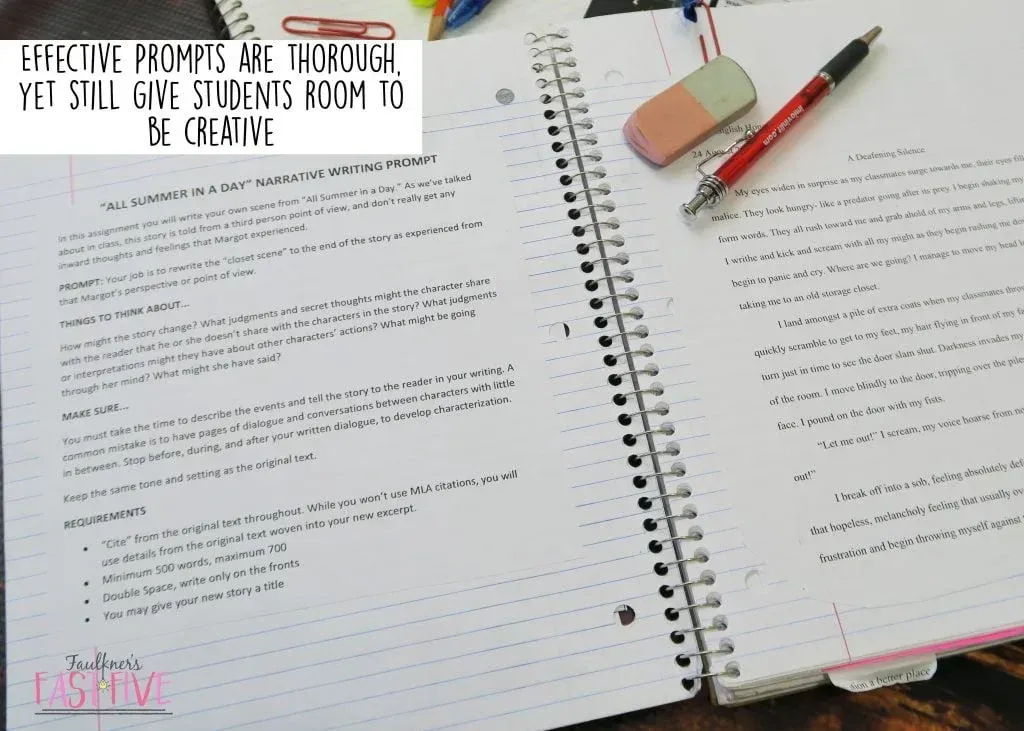 EFFECTIVE PROMPTS ARE THOROUGH,
YET STILL GIVE STUDENTS ROOM TO
BE CREATIVE
"ALL SUMMER IN A DAY" NARRATIVE WRITING PROMPT
In this assignment you will write your own scene from "All Summer in a Day." As we've talked
about in class, this story is told from a third person point of view, and don't really get any
inward thoughts and feelings that Margot experienced.
PROMPT: Your job is to rewrite the "closet scene" to the end of the story as experienced from
that Margot's perspective or point of view.
THINGS TO THINK ABOUT...
How might the story change? What judgments and secret thoughts might the character share
with the reader that he or she doesn't share with the characters in the story? What judgments
or interpretations might they have about other characters' actions? What might be going
through her mind? What might she have said?
MAKE SURE...
You must take the time to describe the events and tell the story to the reader in your writing. A
common mistake is to have pages of dialogue and conversations between characters with little
in between. Stop before, during, and after your written dialogue, to develop characterization.
Keep the same tone and setting as the original text.
REQUIREMENTS
• "Cite" from the original text throughout. While you won't use MLA citations, you will
use details from the original text woven into your new excerpt.
• Minimum 500 words, maximum 700
• Double Space, write only on the fronts
• You may give your new story a title
Faulkner's
FAST FIVE
English
24
A Deafening Silence
My eyes widen in surprise as my classmates surge towards me, their eyes
malice. They look hungry- like a predator going after its prey. I begin shaking my
form words. They all rush toward me and grab ahold of my arms and legs,
I writhe and kick and scream with all my might as they begin rushing me
begin to panic and cry. Where are we going? I manage to move my head
taking me to an old storage closet.
I land amongst a pile of extra coats when my classmates
quickly scramble to get to my feet, my hair flying in front of my
turn just in time to see the door slam shut. Darkness invades my
of the room. I move blindly to the door, tripping over the
face. I pound on the door with my fists.
"Let me out!" I scream, my voice hoarse from
out!"
I break off into a sob, feeling absolutely
that hopeless, melancholy feeling that usually
frustration and begin throwing myself against
inlovinit.com
tion a better place